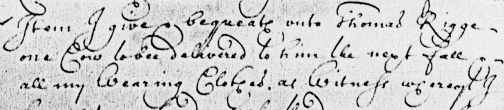 Item I give & bequeath unto Thomas Rigge
one Cow to bee delivered to him the next fall
all my Wearing Clothes. as Witness whereof I